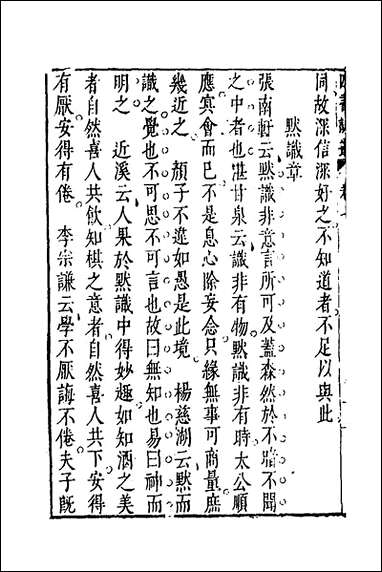 同故深信深好之不知道者不足以與此
默識章
張南軒云默識非意言所可及蓋森然於不睹不聞
之中者也湛甘泉云識非有物默識非有時太公順
應寞會而已不是息心除妄念只緣無事可商量庶
幾近之　顏子不違如愚是此境　楊慈湖云默而
識之覺也不可思不可言也故曰無知也易曰神而
明之　近溪云人果於默識中得妙趣如知酒之美
者自然喜人共飲知棋之意者自然喜人共下安得
有厭安得有倦　李宗謙云學不厭誨不倦夫子既